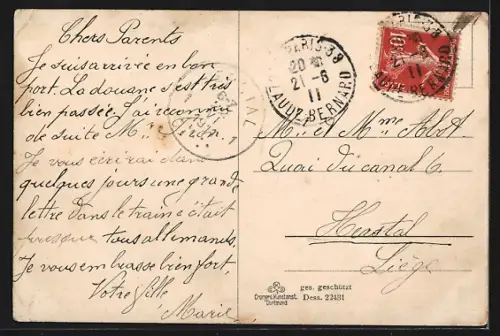 Chers Parents
Je suis arrivée en bon
port. La douane s'est très
bien passée. J'ai reconnu
de suite Mr
Je vous écrirai dans
quelques jours une grande
lettre dans le train c'était
presque tous allemands.
Je vous embrasse bien fort,
Votre fille
Marie
PARIS-38
20
21-6
11
BERNARD
10
Mr et Mme Abst
Quai du canal 6
Herstal
Liège
ges. geschützt
Dess. 22481
Dortmund